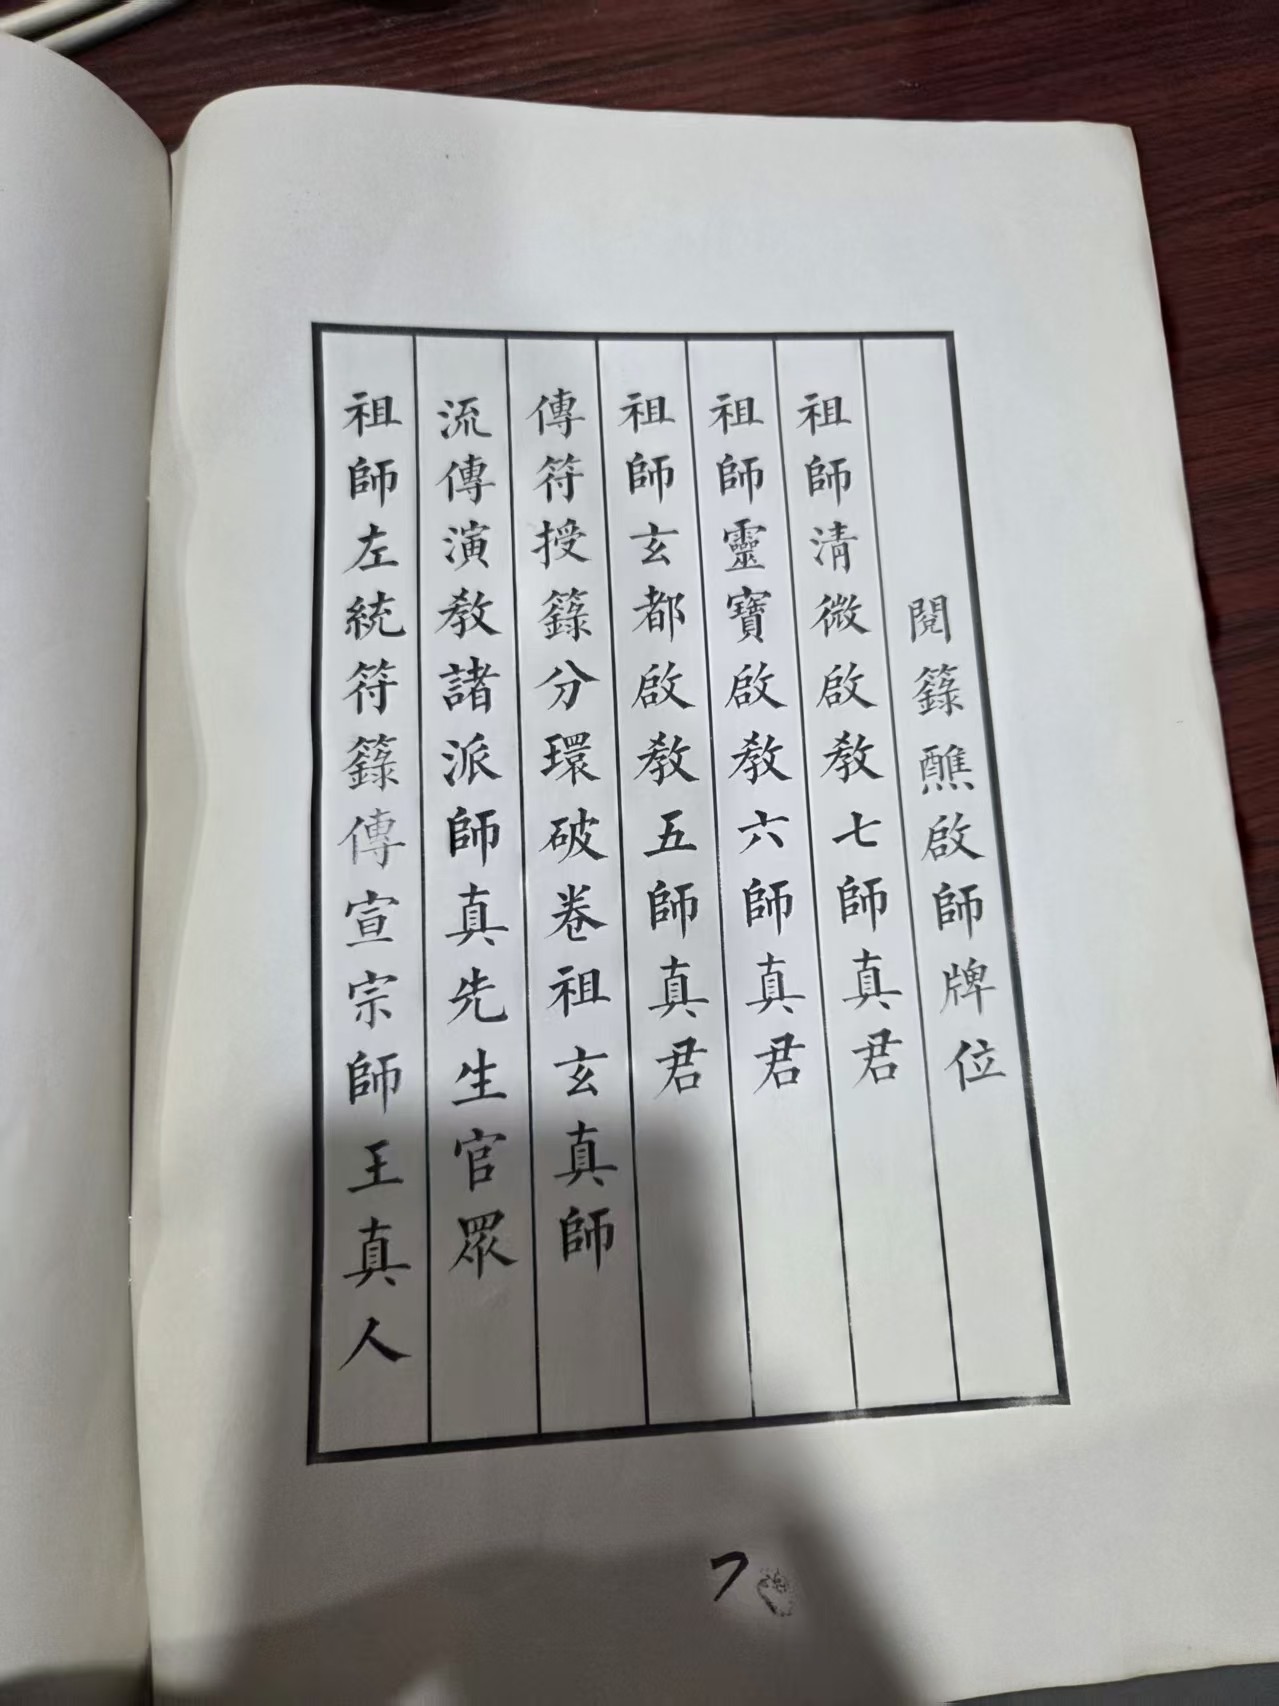 閱籙醮啟師牌位
祖師清微啟教七師真君
祖師靈寶啟教六師真君
祖師玄都啟教五師真君
傳符授籙分環破卷祖玄真師
流傳演教諸派師真先生官眾
祖師左統符籙傳宣宗師王真人
7